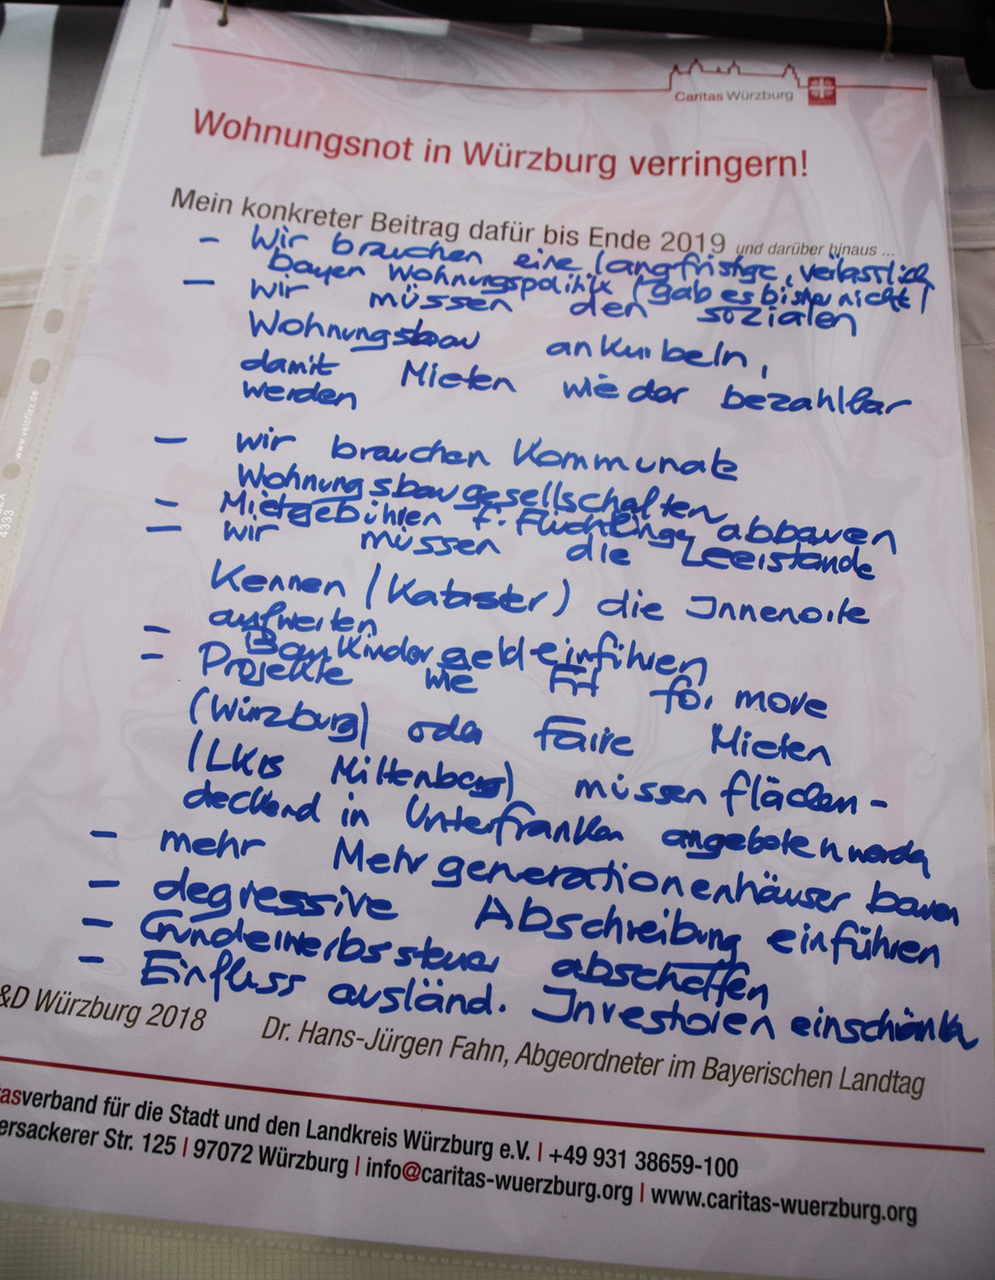 Caritas Würzburg
Wohnungsnot in Würzburg verringern!
Mein konkreter Beitrag dafür bis Ende 2019 und darüber hinaus ...
- Wir brauchen eine langfristige, verlässlich
bayer Wohnungspolitik (gab es bisher nicht)
- wir müssen den sozialen
Wohnungsbau ankurbeln,
damit Mieten wieder bezahlbar
werden
- wir brauchen Kommunale
Wohnungsbaugesellschaften
- Mietgebühren f. Flüchtlinge abbauen
- wir müssen die Leerstände
Kennen (Kataster) die Innenorte
aufwerten
- Baukindergeld einführen
- Projekte wie Fit for move
(Würzburg) oder Faire Mieten
(LKrs Miltenberg) müssen flächen-
deckend in Unterfranken angeboten werden
- mehr Mehrgenerationenhäuser bauen
- degressive Abschreibung einführen
- Grunderwerbssteuer abschaffen
- Einfluss ausländ. Investoren einschränken
&D Würzburg 2018 Dr. Hans-Jürgen Fahn, Abgeordneter im Bayerischen Landtag
tasverband für die Stadt und den Landkreis Würzburg e.V. | +49 931 38659-100
ersackerer Str. 125 | 97072 Würzburg | info@caritas-wuerzburg.org | www.caritas-wuerzburg.org
www.veloflex.de
4333